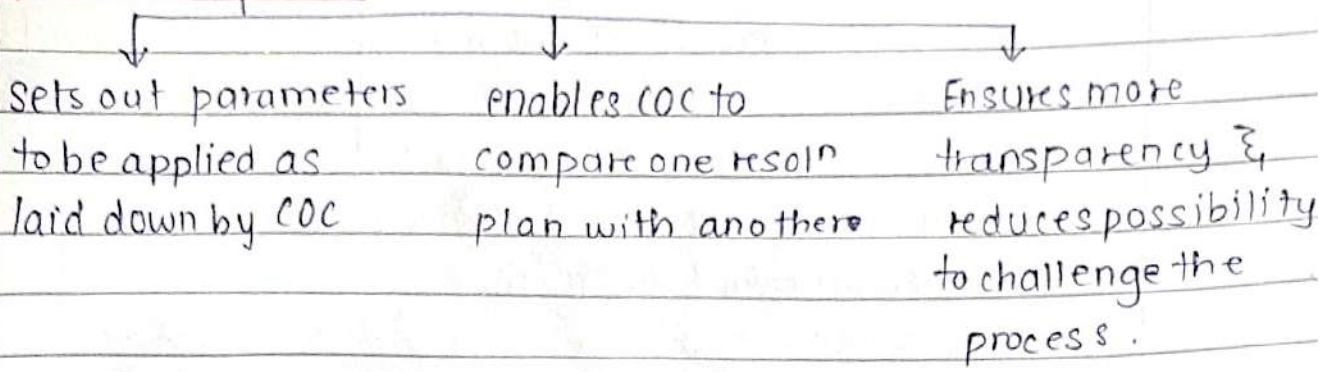 Sets out parameters
to be applied as
laid down by COC
enables COC to
compare one resolⁿ
plan with another
Ensures more
transparency &
reduces possibility
to challenge the
process.